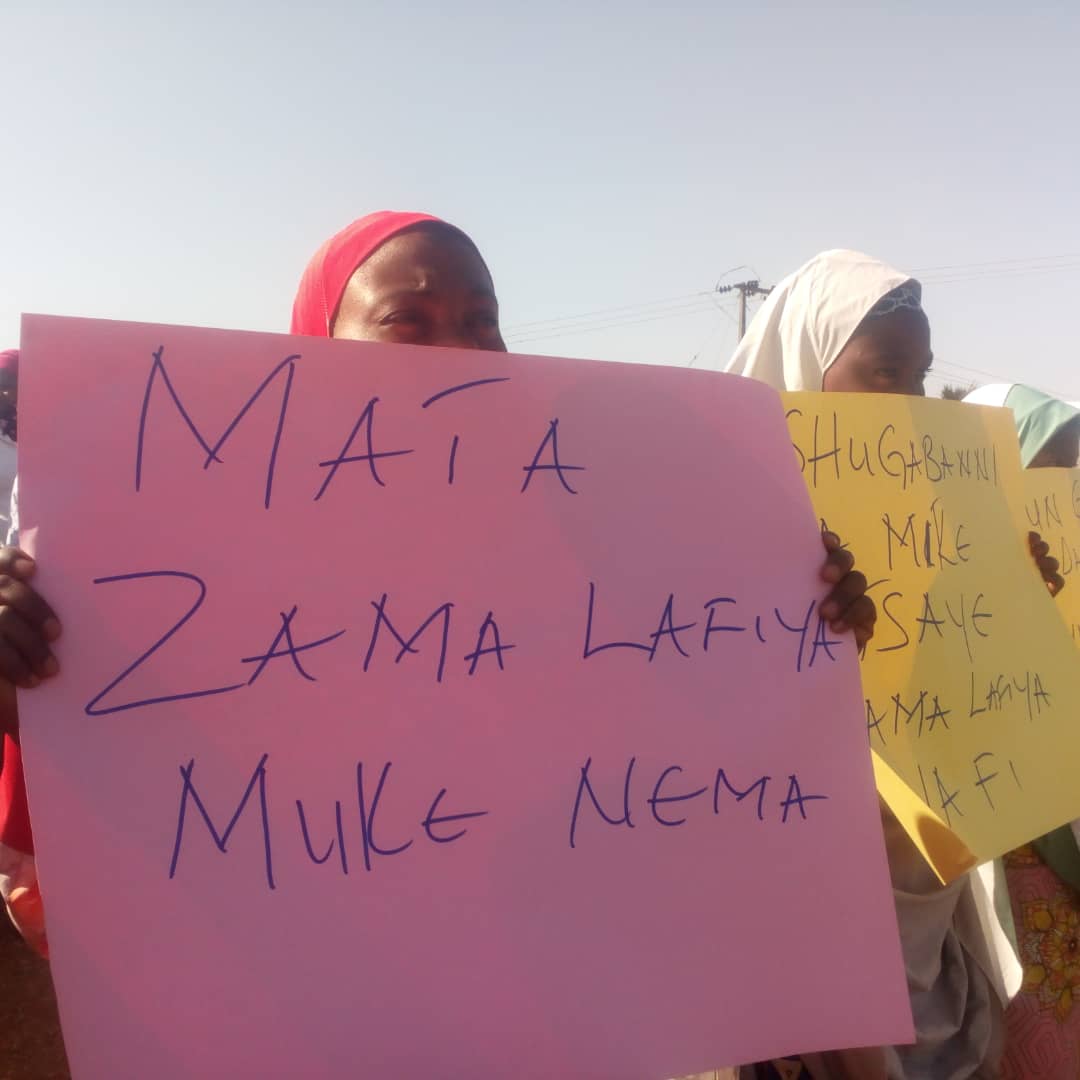 MATA
ZAMA LAFIYA
MUKE NEMA
SHUGABANNI
MIKE
TSAYE
LAFIYA
YAFI
UN